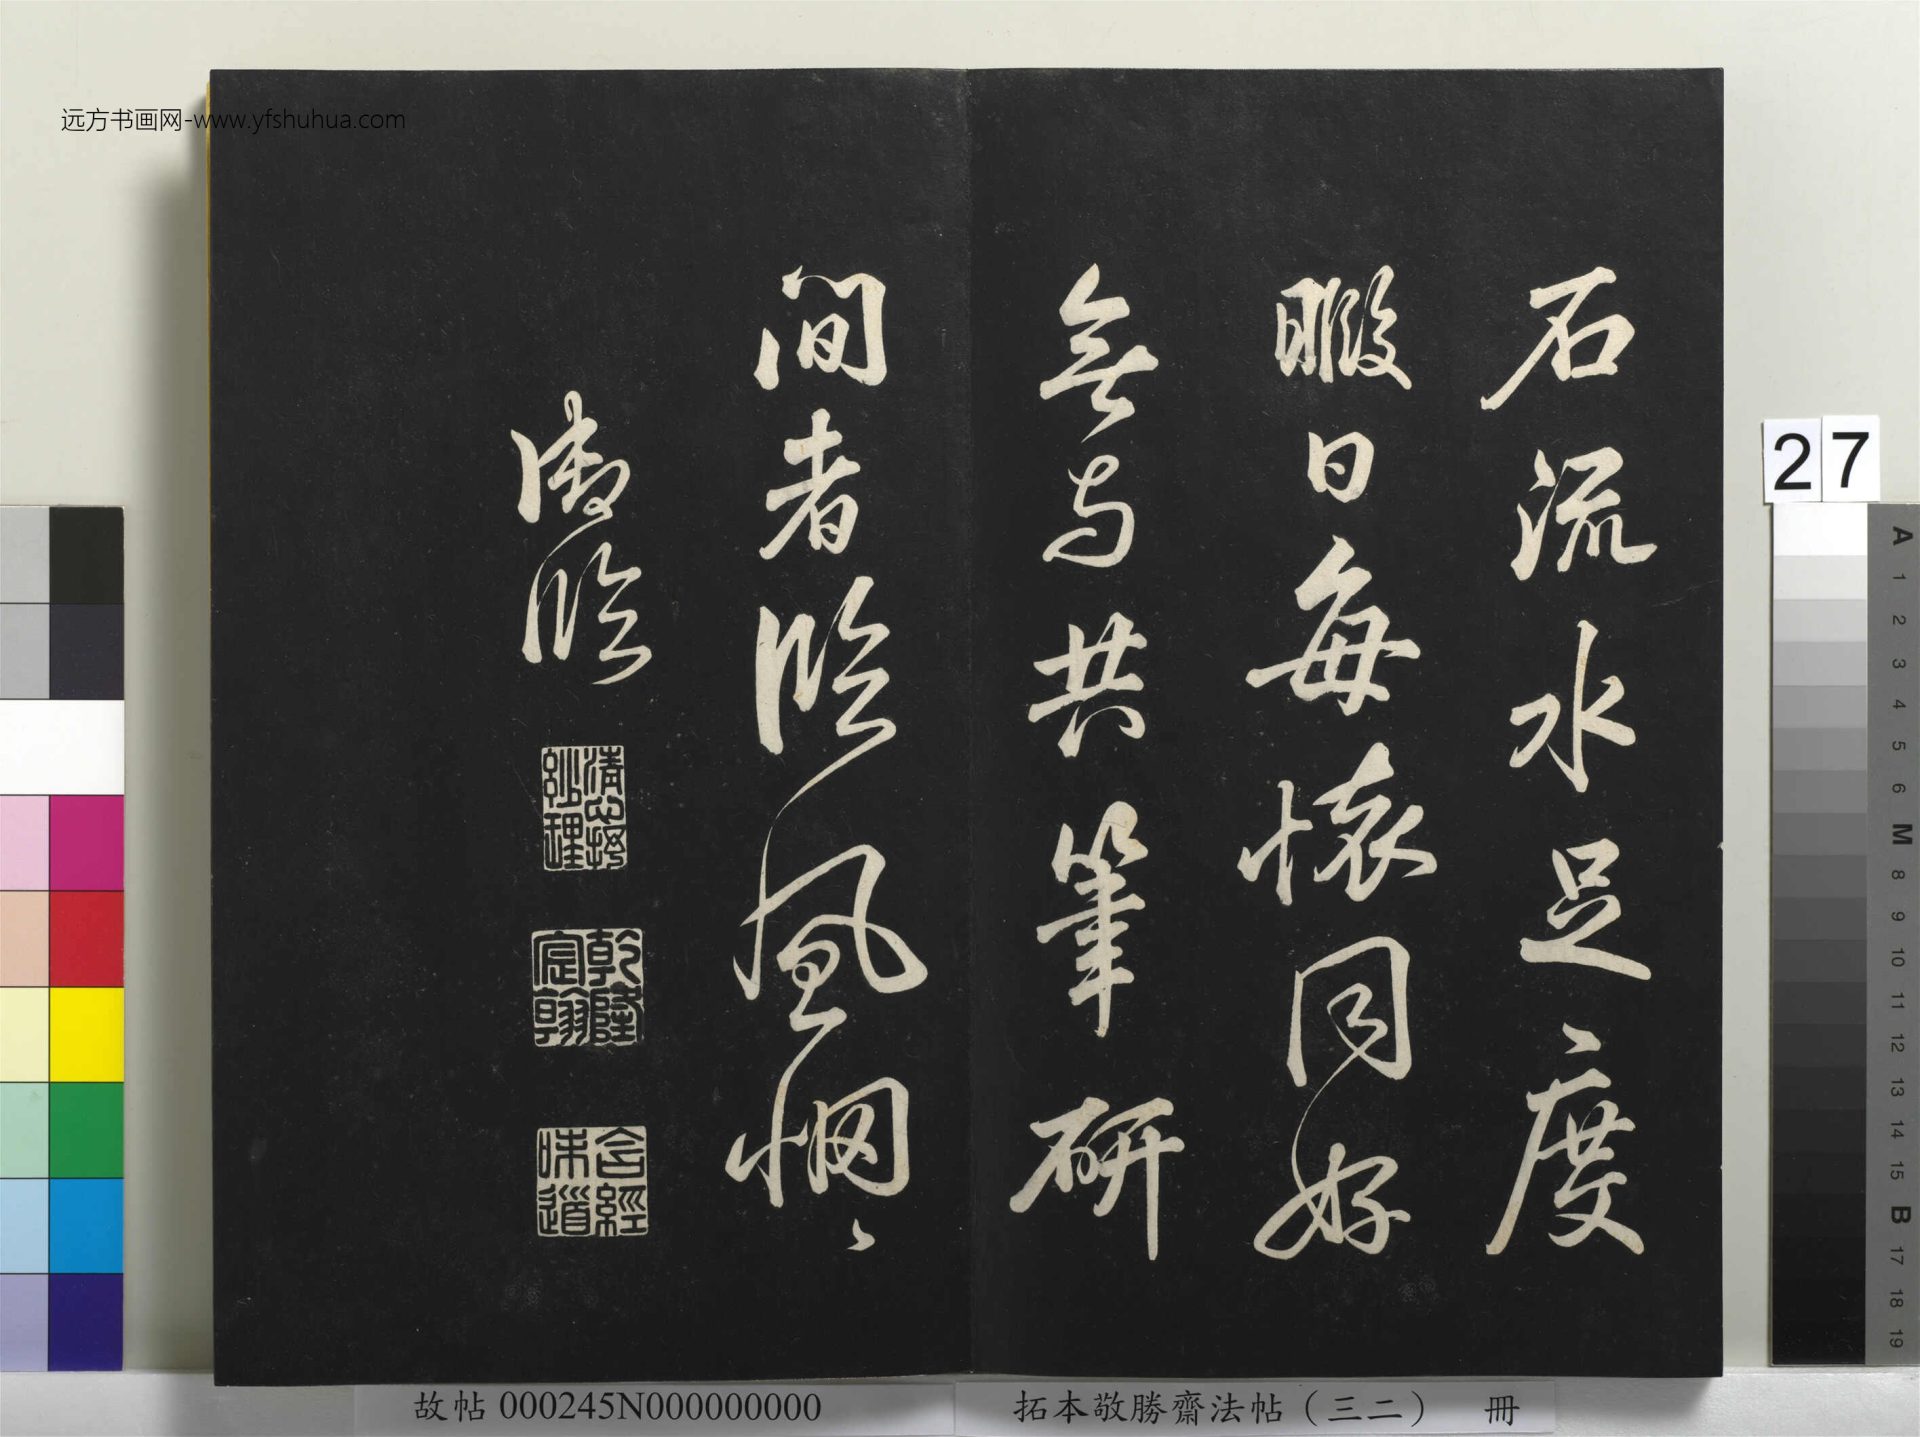 石流水足度
暇日每懷同好
無与共筆研
間者臨風惘〻
御臨
清心抒妙理
乾隆宸翰
含經味道
远方书画网-www.yfshuhua.com
27
A 1 2 3 4 5 6 M 8 9 10 11 12 13 14 15 B 17 18 19
拓本敬勝齋法帖（三二） 冊
故帖 000245N000000000